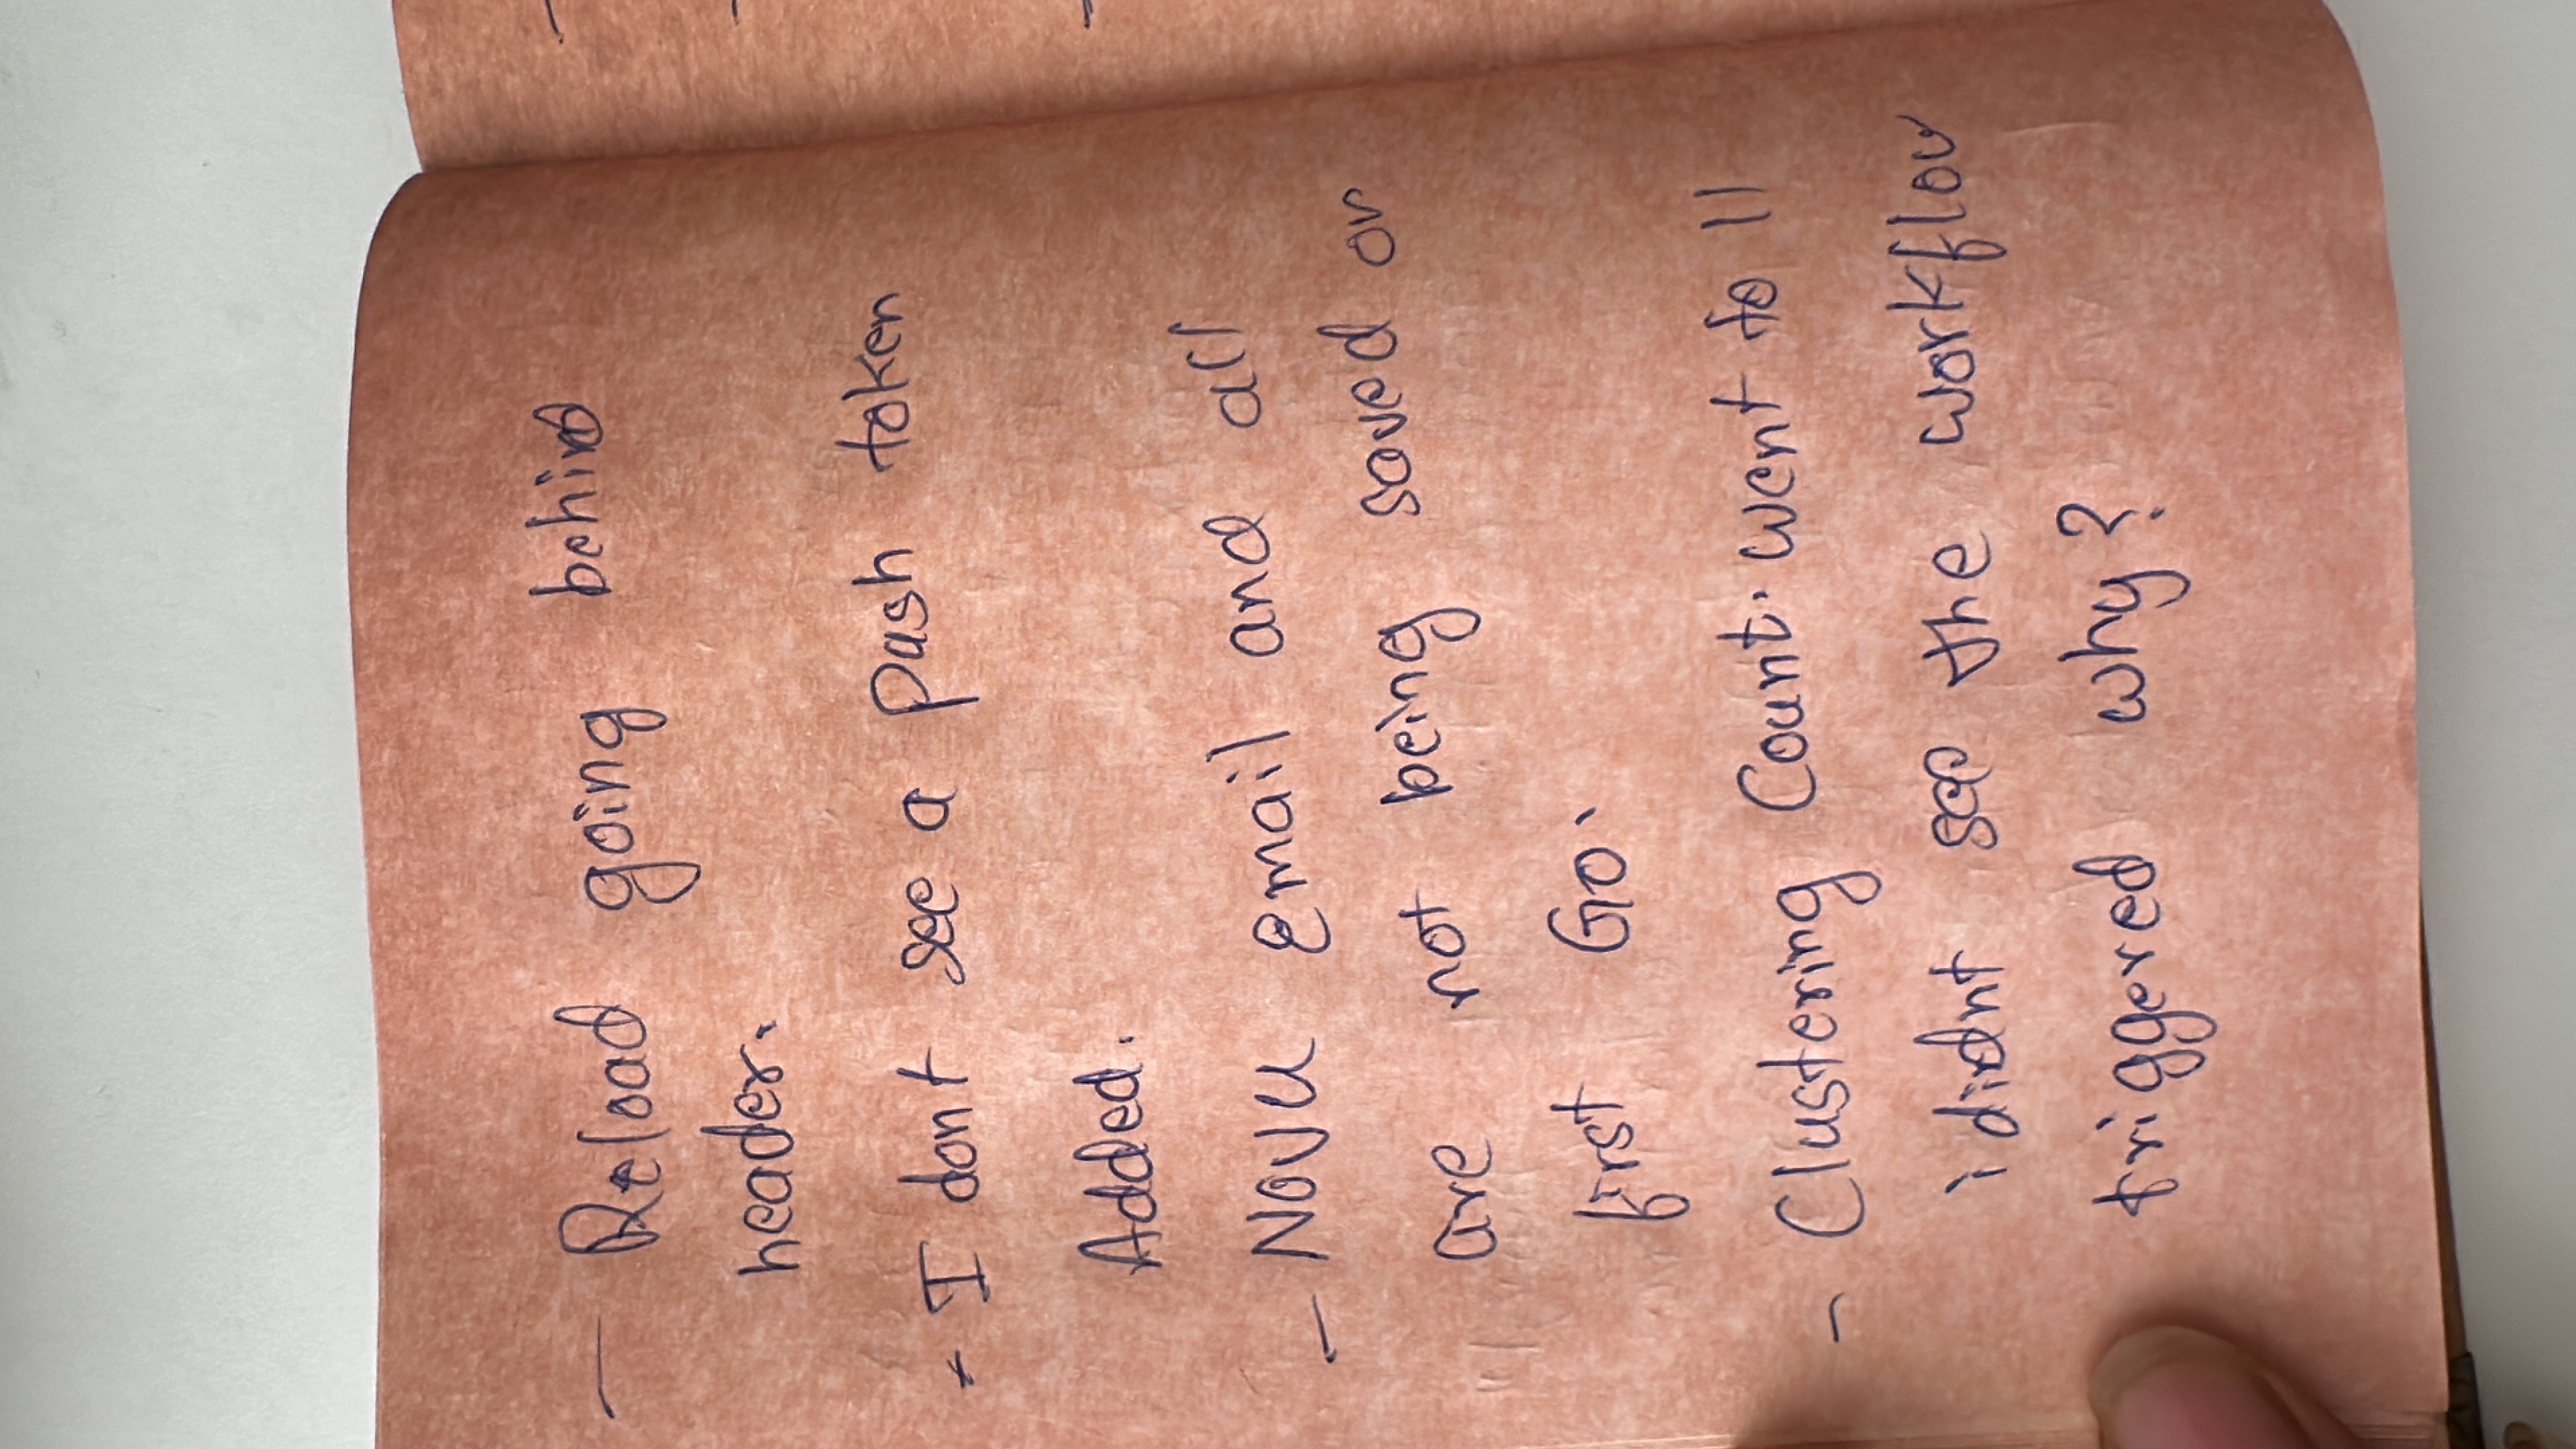 - Reload going behind
header.
* I dont see a push token
Added.
- Novu email and all
are not being saved on
first Go.
- Clustering Count. went to 11
i didnt see the workflow
triggered why?